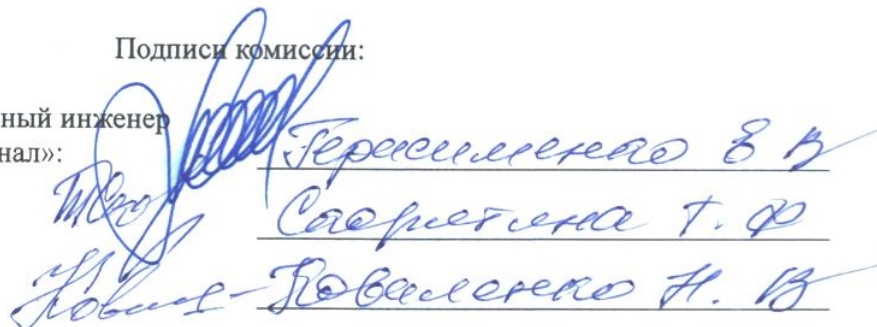 Подписи комиссии:
ный инженер
нал»:
Герасименко Е В
Т. Ф
Коваленко Н. В